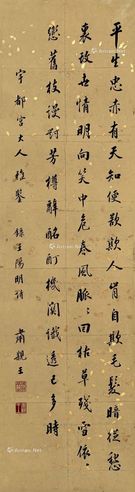 平生忠赤有天知便欲欺人肯自欺毛髮暗從愁
裏改世情明向笑中危春風脈々回枯草殘雪依々
戀舊枝謾對芳樽辭酩酊機關識透已多時
宇都宮大人雅鑒 錄王陽明詩 肅親王
Artron.Net